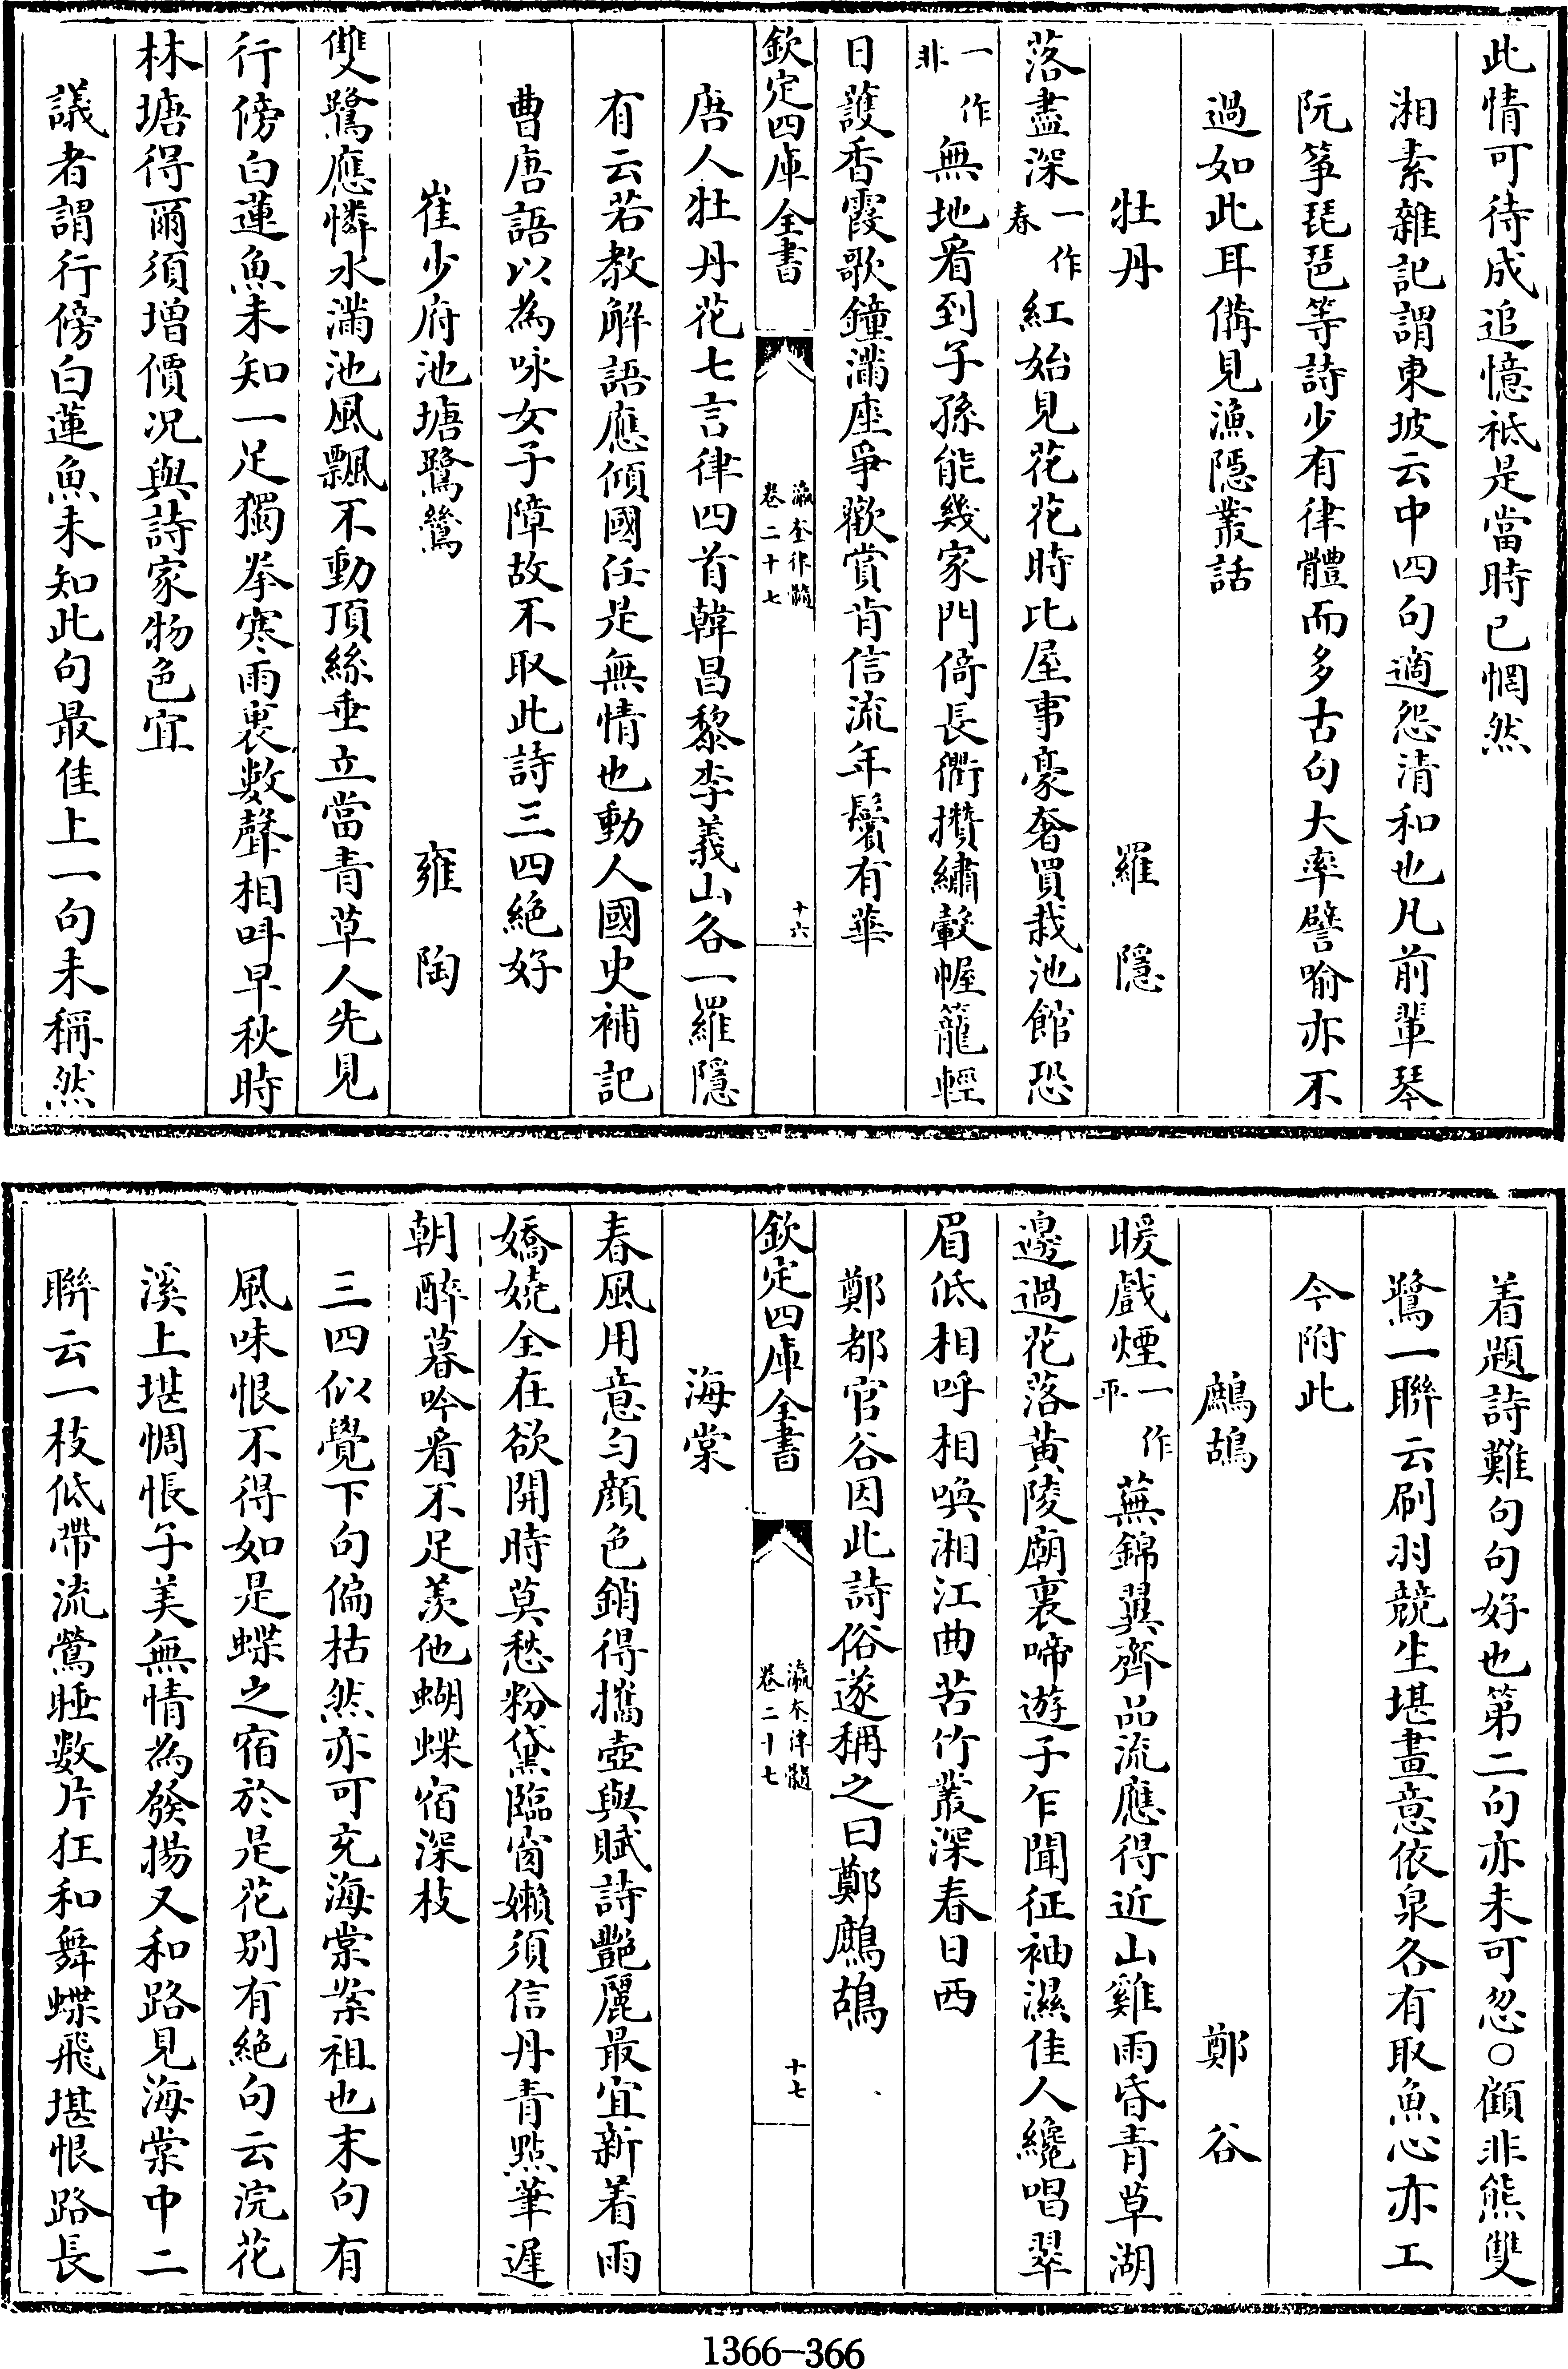 此情可待成追憶祗是當時已惘然
湘素雜記謂東坡云中四句適怨清和也凡前輩琴
阮箏琵琶等詩少有律體而多古句大率譬喻亦不
過如此耳備見漁隱叢話
牡丹　羅隱
落盡深一作春紅始見花花時比屋事豪奢買栽池館恐
一作非無地看到子孫能幾家門倚長衢攢繡轂幄籠輕
日護香霞歌鐘滿座爭歡賞肯信流年鬢有華
欽定四庫全書　瀛奎律髓卷二十七　十六
唐人牡丹花七言律四首韓昌黎李義山各一羅隱
有云若教解語應傾國任是無情也動人國史補記
曹唐語以為咏女子障故不取此詩三四絶好
崔少府池塘鷺鷥　雍陶
雙鷺應憐水滿池風飄不動頂絲垂立當青草人先見
行傍白蓮魚未知一足獨拳寒雨裏數聲相呌早秋時
林塘得爾須增價况與詩家物色宜
議者謂行傍白蓮魚未知此句最佳上一句未稱然
着題詩難句句好也第二句亦未可忽○顧非熊雙
鷺一聯云刷羽競生堪畫意依泉各有取魚心亦工
今附此
鷓鴣　鄭谷
暖戲煙一作平蕪錦翼齊品流應得近山雞雨昏青草湖
邊過花落黄陵廟裏啼遊子乍聞征袖濕佳人纔唱翠
眉低相呼相喚湘江曲苦竹叢深春日西
鄭都官谷因此詩俗遂稱之曰鄭鷓鴣
欽定四庫全書　瀛奎律髓卷二十七　十七
海棠
春風用意勻顔色銷得攜壺與賦詩艷麗最宜新着雨
嬌嬈全在欲開時莫愁粉黛臨窗嬾須信丹青點筆遲
朝醉暮吟看不足羨他蝴蝶宿深枝
三四似覺下句偏枯然亦可充海棠案祖也末句有
風味恨不得如是蝶之宿於是花别有絶句云浣花
溪上堪惆悵子美無情為發揚又和路見海棠中二
聯云一枝低帶流鶯睡數片狂和舞蝶飛堪恨路長
1366-366